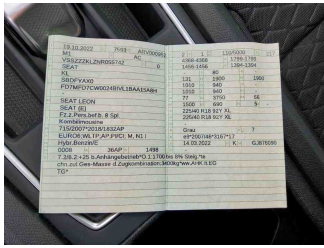 19.10.2022 7593
M1 AC
VSSZZZKLZNR055742 6
SEAT
KL
SBDFYAX0
SEAT LEON
SEAT (E)
Fz.z.Pers.bef.b. 8 Spl.
Kombilimousine
715/2007*2018/1832AP
EURO6;WLTP;AP;PI/CI; M, N1 I
Hybr.Benzin/E
0008 36AP 1498
7.3/8.2:+25 b.Anhängebetrieb*O.1:1700 bis 8% Steig.*te
chn.zul.Ges-Masse d.Zugkombination:
TG*
2 1 110/5000 217
4368-4368 1799-1799
1456-1456 1394-1394
80
131 1900 1900
1010 940
1010 940
77 3750 66
1500 690 5
225/40 R18 92Y XL
225/40 R18 92Y XL
Grau 7
e9*2007/46*3167*17
14.03.2022 K GJ676090